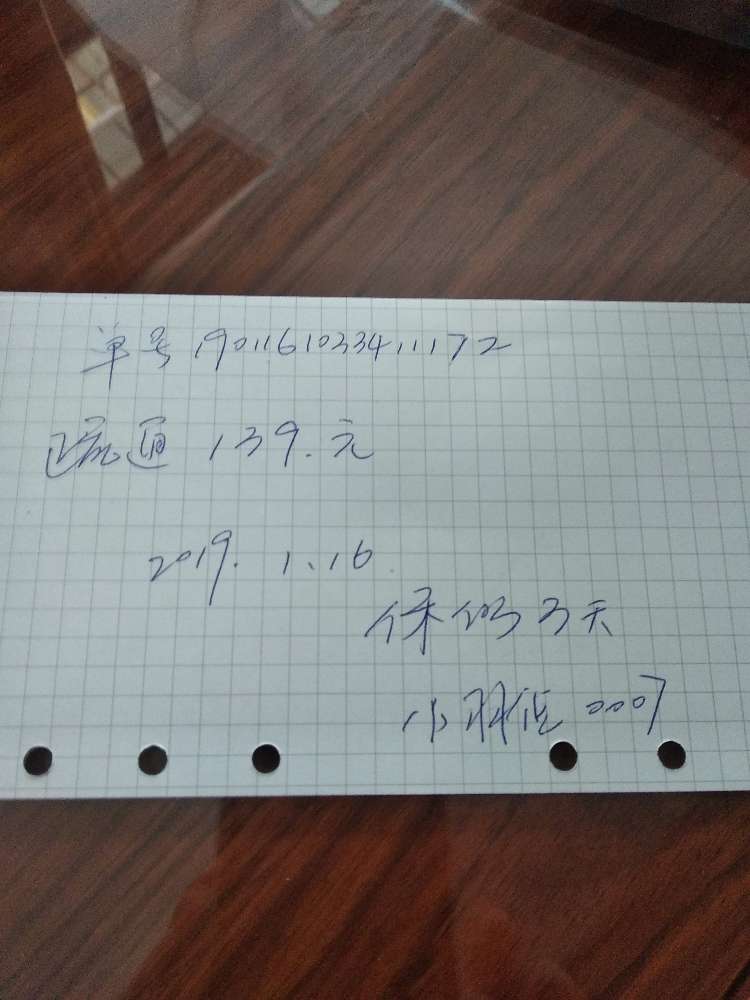 单号 1901161033411172
疏通 139.元
2019.1.16
保修3天
小羽佳 0007